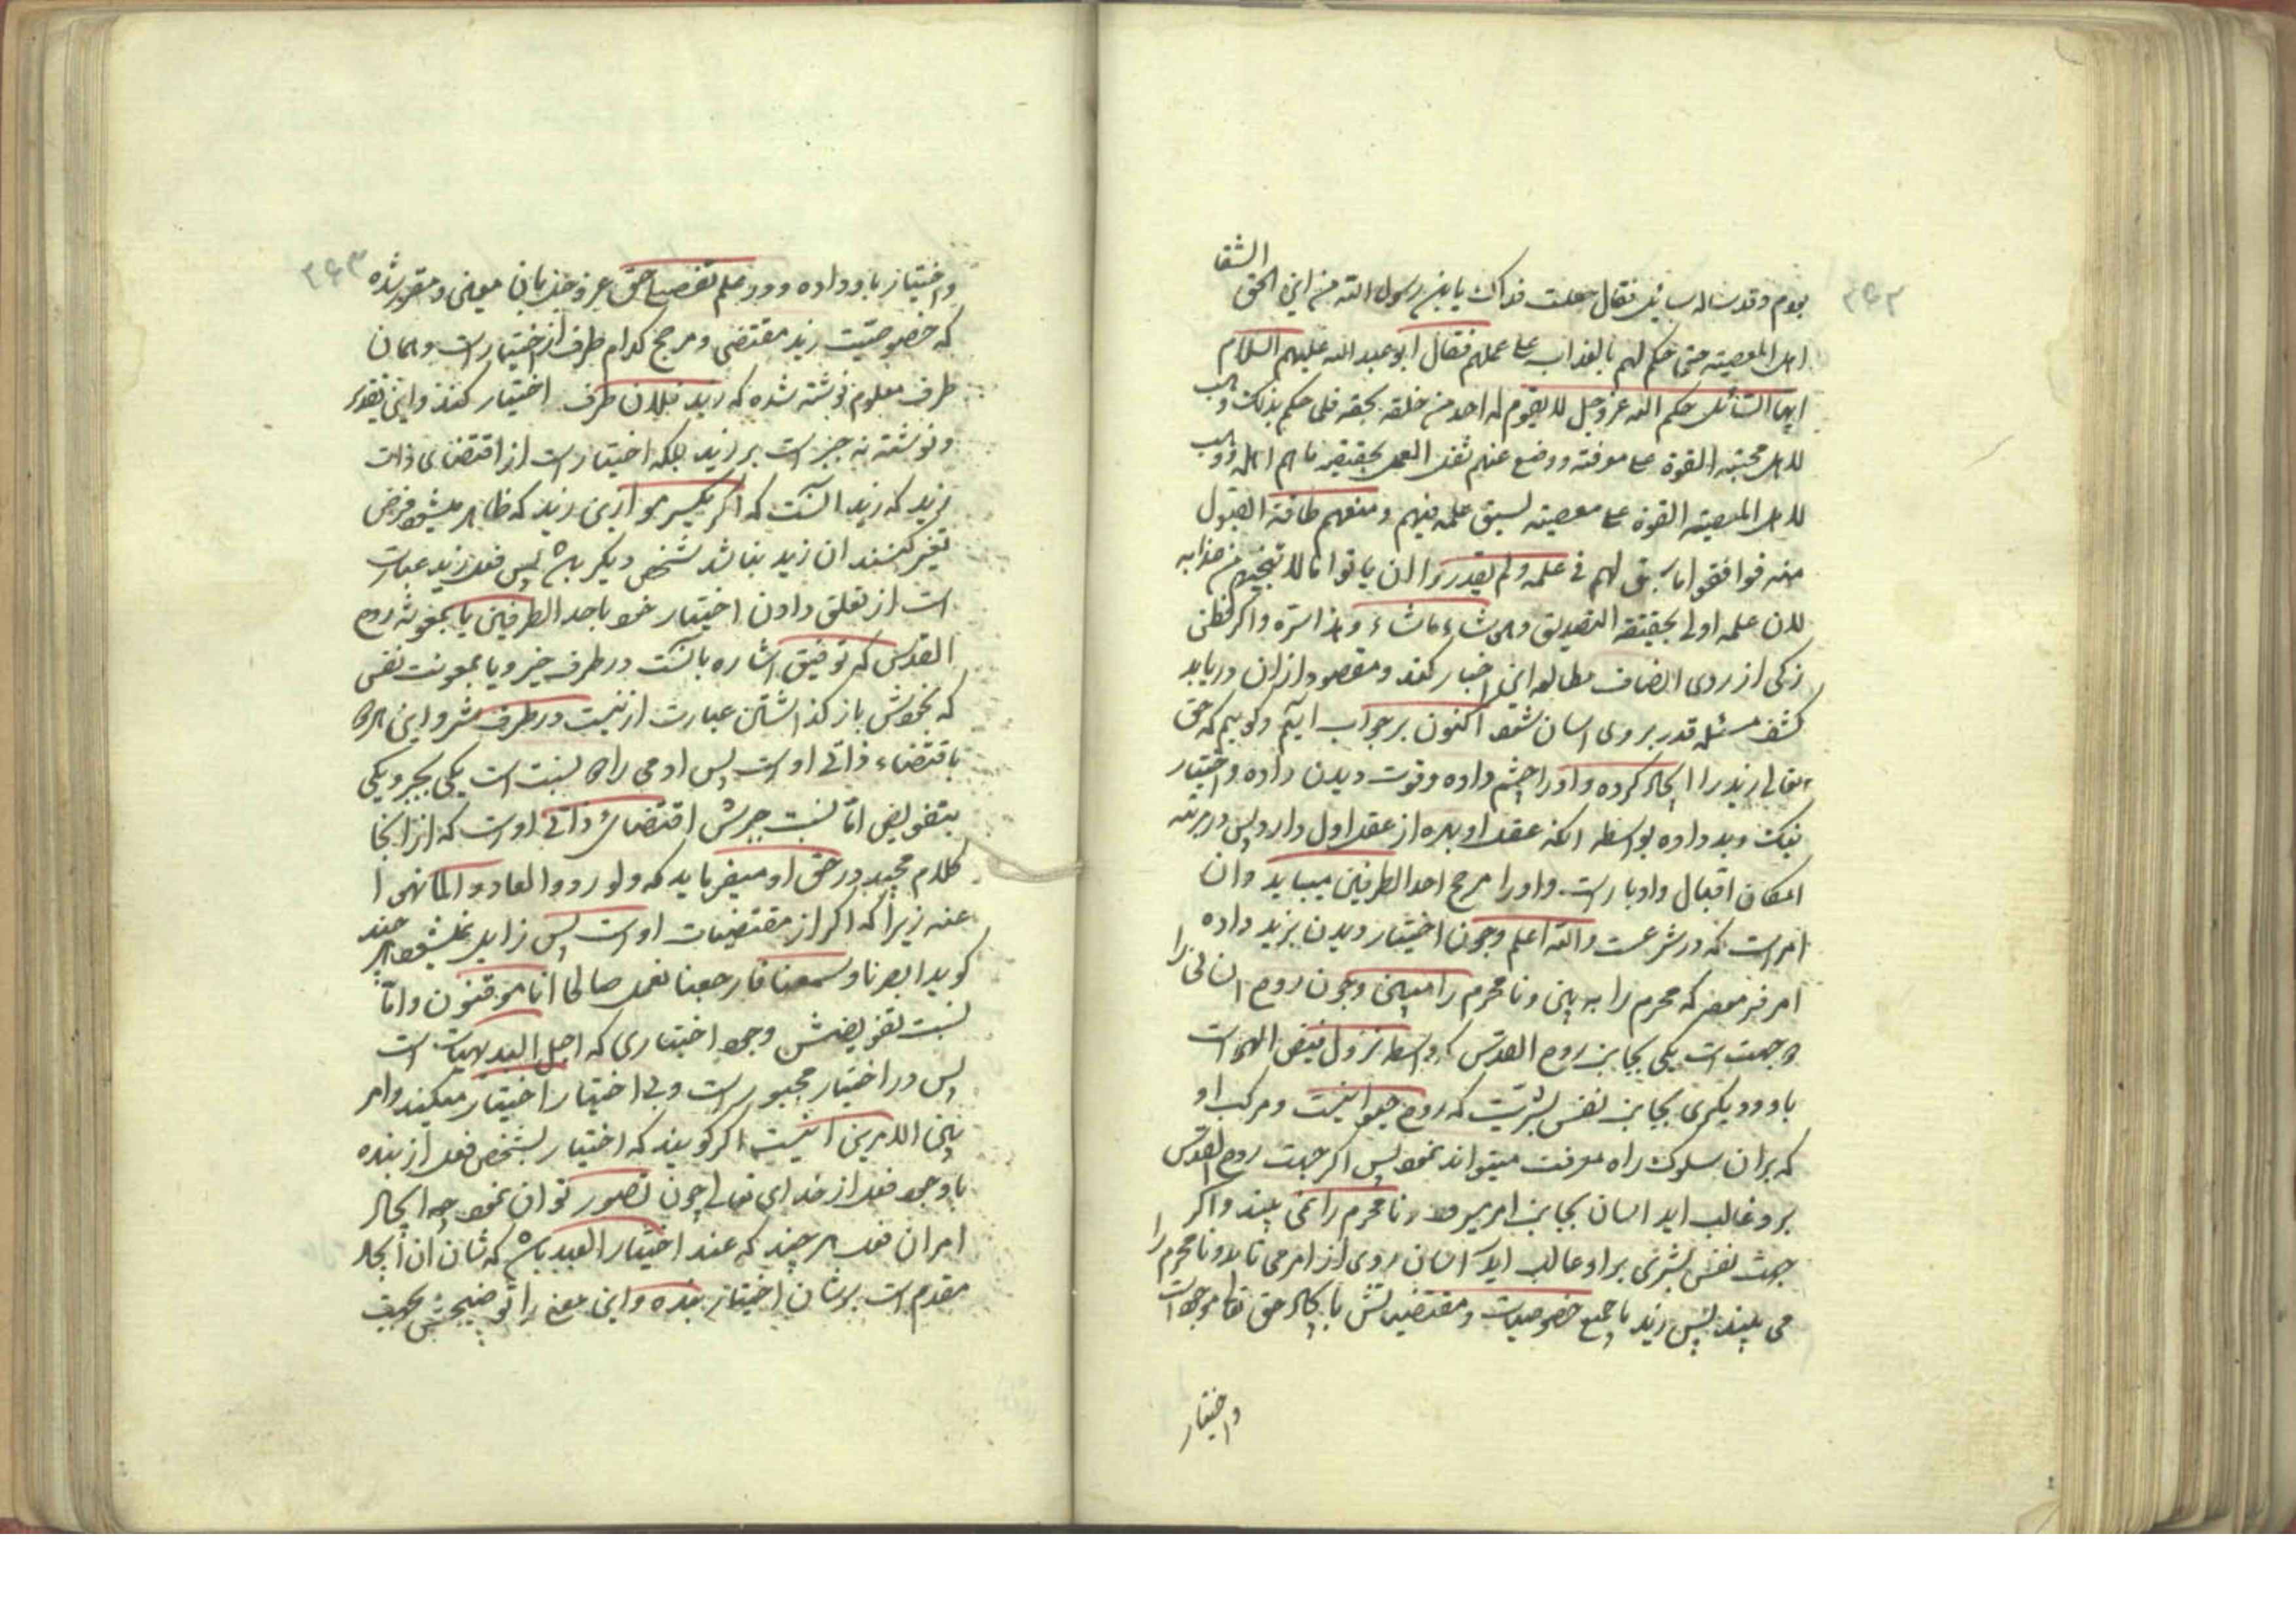 ۳۶۲
الشقا
یوم وقد ساله سائل فقال جعلت فداک یابن رسول الله من این لحق
اهل المعصیته حتی حکم لهم بالعذاب علی عملهم فقال ابو عبد الله علیهم السلام
ایها السائل حکم الله عز و جل لا یقوم له احد من خلقه بحقه فلما حکم بذلک وهب
لاهل محبته القوة علی معرفته ووضع عنهم ثقل العمل بحقیقه ما هم اهله ووهب
لاهل المعصیته القوة علی معصیته لسبق علمه فیهم ومنعهم طاقة القبول
منه فوافقوا ما سبق لهم فی علمه ولم یقدروا ان یاتوا حالا تنجیهم من عذابه
لان علمه اولی بحقیقة التصدیق وهو شاء ما شاء وهذا سره واکر فطنی
زکی از روی انصاف مطالعه این اخبار کند و مقصود از ان دریابد
کشف مسئله قدر بر وی اسان شود اکنون بر جواب ایم وکوییم که حق
تعالی زید را ایجاد کرده و او را چشم داده وقوت دیدن داده و اختیار
نیک و بد داده بواسطه انکه عقل او بهره از عقل اول دارد پس در مرتبه
امکان اقبال وادبار است واورا مرجح احد الطرفین میباید وان
امر است که در شرعست والله اعلم وچون اختیار دیدن بزید داده
امر فرموده که محرم را به بین ونا محرم را مبین وچون روح انسانی را
دو جهت است یکی بجانب روح القدس که واسطه نزول فیض الهی است
باو ودیکری بجانب نفس بشریت که روح حیوانیست ومرکب او
که بران سلوک راه معرفت میتواند نمود پس اکر جهت روح القدس
برو غالب اید انسان بجانب امر میرود ونا محرم را نمی بیند واکر
جهت نفس بشری براو غالب اید انسان روی از امر می تابد ونا محرم را
می بیند پس زید با جمیع خصوصیات ومقتضیاتش بایجاد حق تعالی موجود است
واختیار
۳۶۳
واختیار باو داده ودر علم تفصیلی حق عز وجل بان معین ومقرر شده
که خصوصیت زید مقتضی ومرجح کدام طرف از اختیار است وهمان
طرف معلوم نوشته شده که زید فلان طرف اختیار کند واین تقدیر
ونوشته نه جبر است بر زید بلکه اختیار است از اقتضای ذات
زید که زید انست که اکر یکسر مو ازین زید که ظاهر میشود فرض
تغیر کنند ان زید نباشد شخص دیکر باشد پس فعل زید عبارت
است از تعلق دادن اختیار خود باحد الطرفین یا بمعونت روح
القدس که توفیق اشاره بانست در طرف خیر ویا بمعونت نفس
که بخودش باز کذاشتن عبارت ازنیست در طرف شر واین هر دو
باقتضاء ذاتی اوست پس ادمی را دو نسبت است یکی بجبر ویکی
بتفویض اما نسبت جبرش اقتضای ذاتی اوست که از انجا
کلام مجید در حق او میفرماید که ولو ردوا لعادوا لما نهوا
عنه زیرا که اکر از مقتضیات اوست پس زاید نمیشود هر چند
کوید ابصرنا وسمعنا فارجعنا نعمل صالحا انا موقنون واما
نسبت تفویضش وجود اختیاری که اجل البدیهیات است
پس در اختیار مجبور است وبی اختیار اختیار میکند وامر
بین الامرین اینست اکر کویند که اختیار لشخص فعل از بنده
با وجود فعل از خدای تعالی چون تصور توان نمود چه ایجاد
امر ان فعل هر چند که عند اختیار العبد باشد که شان ان ایجاد
مقدم است بر شان اختیار بنده واین معنی را توضیحش بحدیث